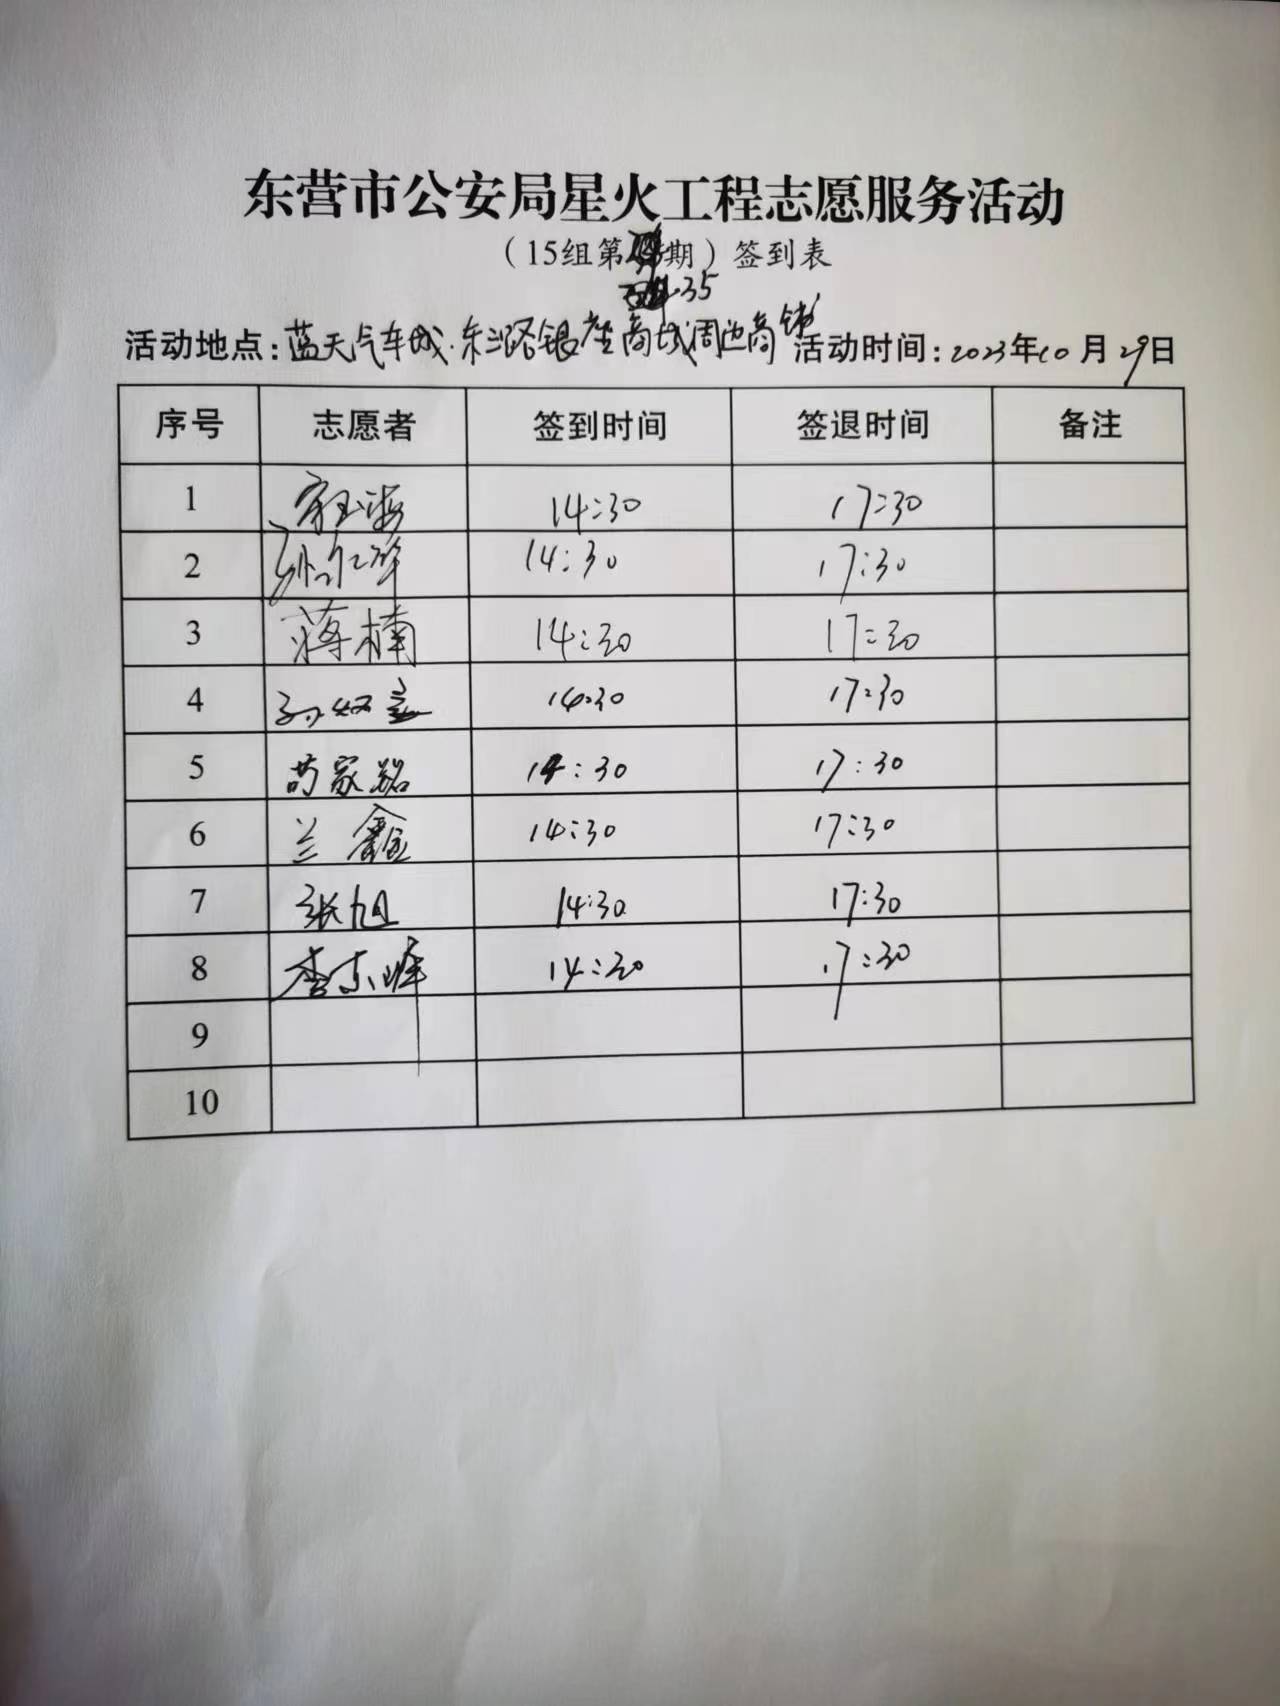 东营市公安局星火工程志愿服务活动
（15组第 期）签到表
35
活动地点：蓝天汽车城·东三路银座商城周边商铺 活动时间：2023年10月29日
序号 志愿者 签到时间 签退时间 备注
1 14:30 17:30
2 14:30 17:30
3 蒋楠 14:30 17:30
4 14:30 17:30
5 苟家铭 14:30 17:30
6 兰鑫 14:30 17:30
7 张旭 14:30 17:30
8 李东峰 14:30 17:30
9
10